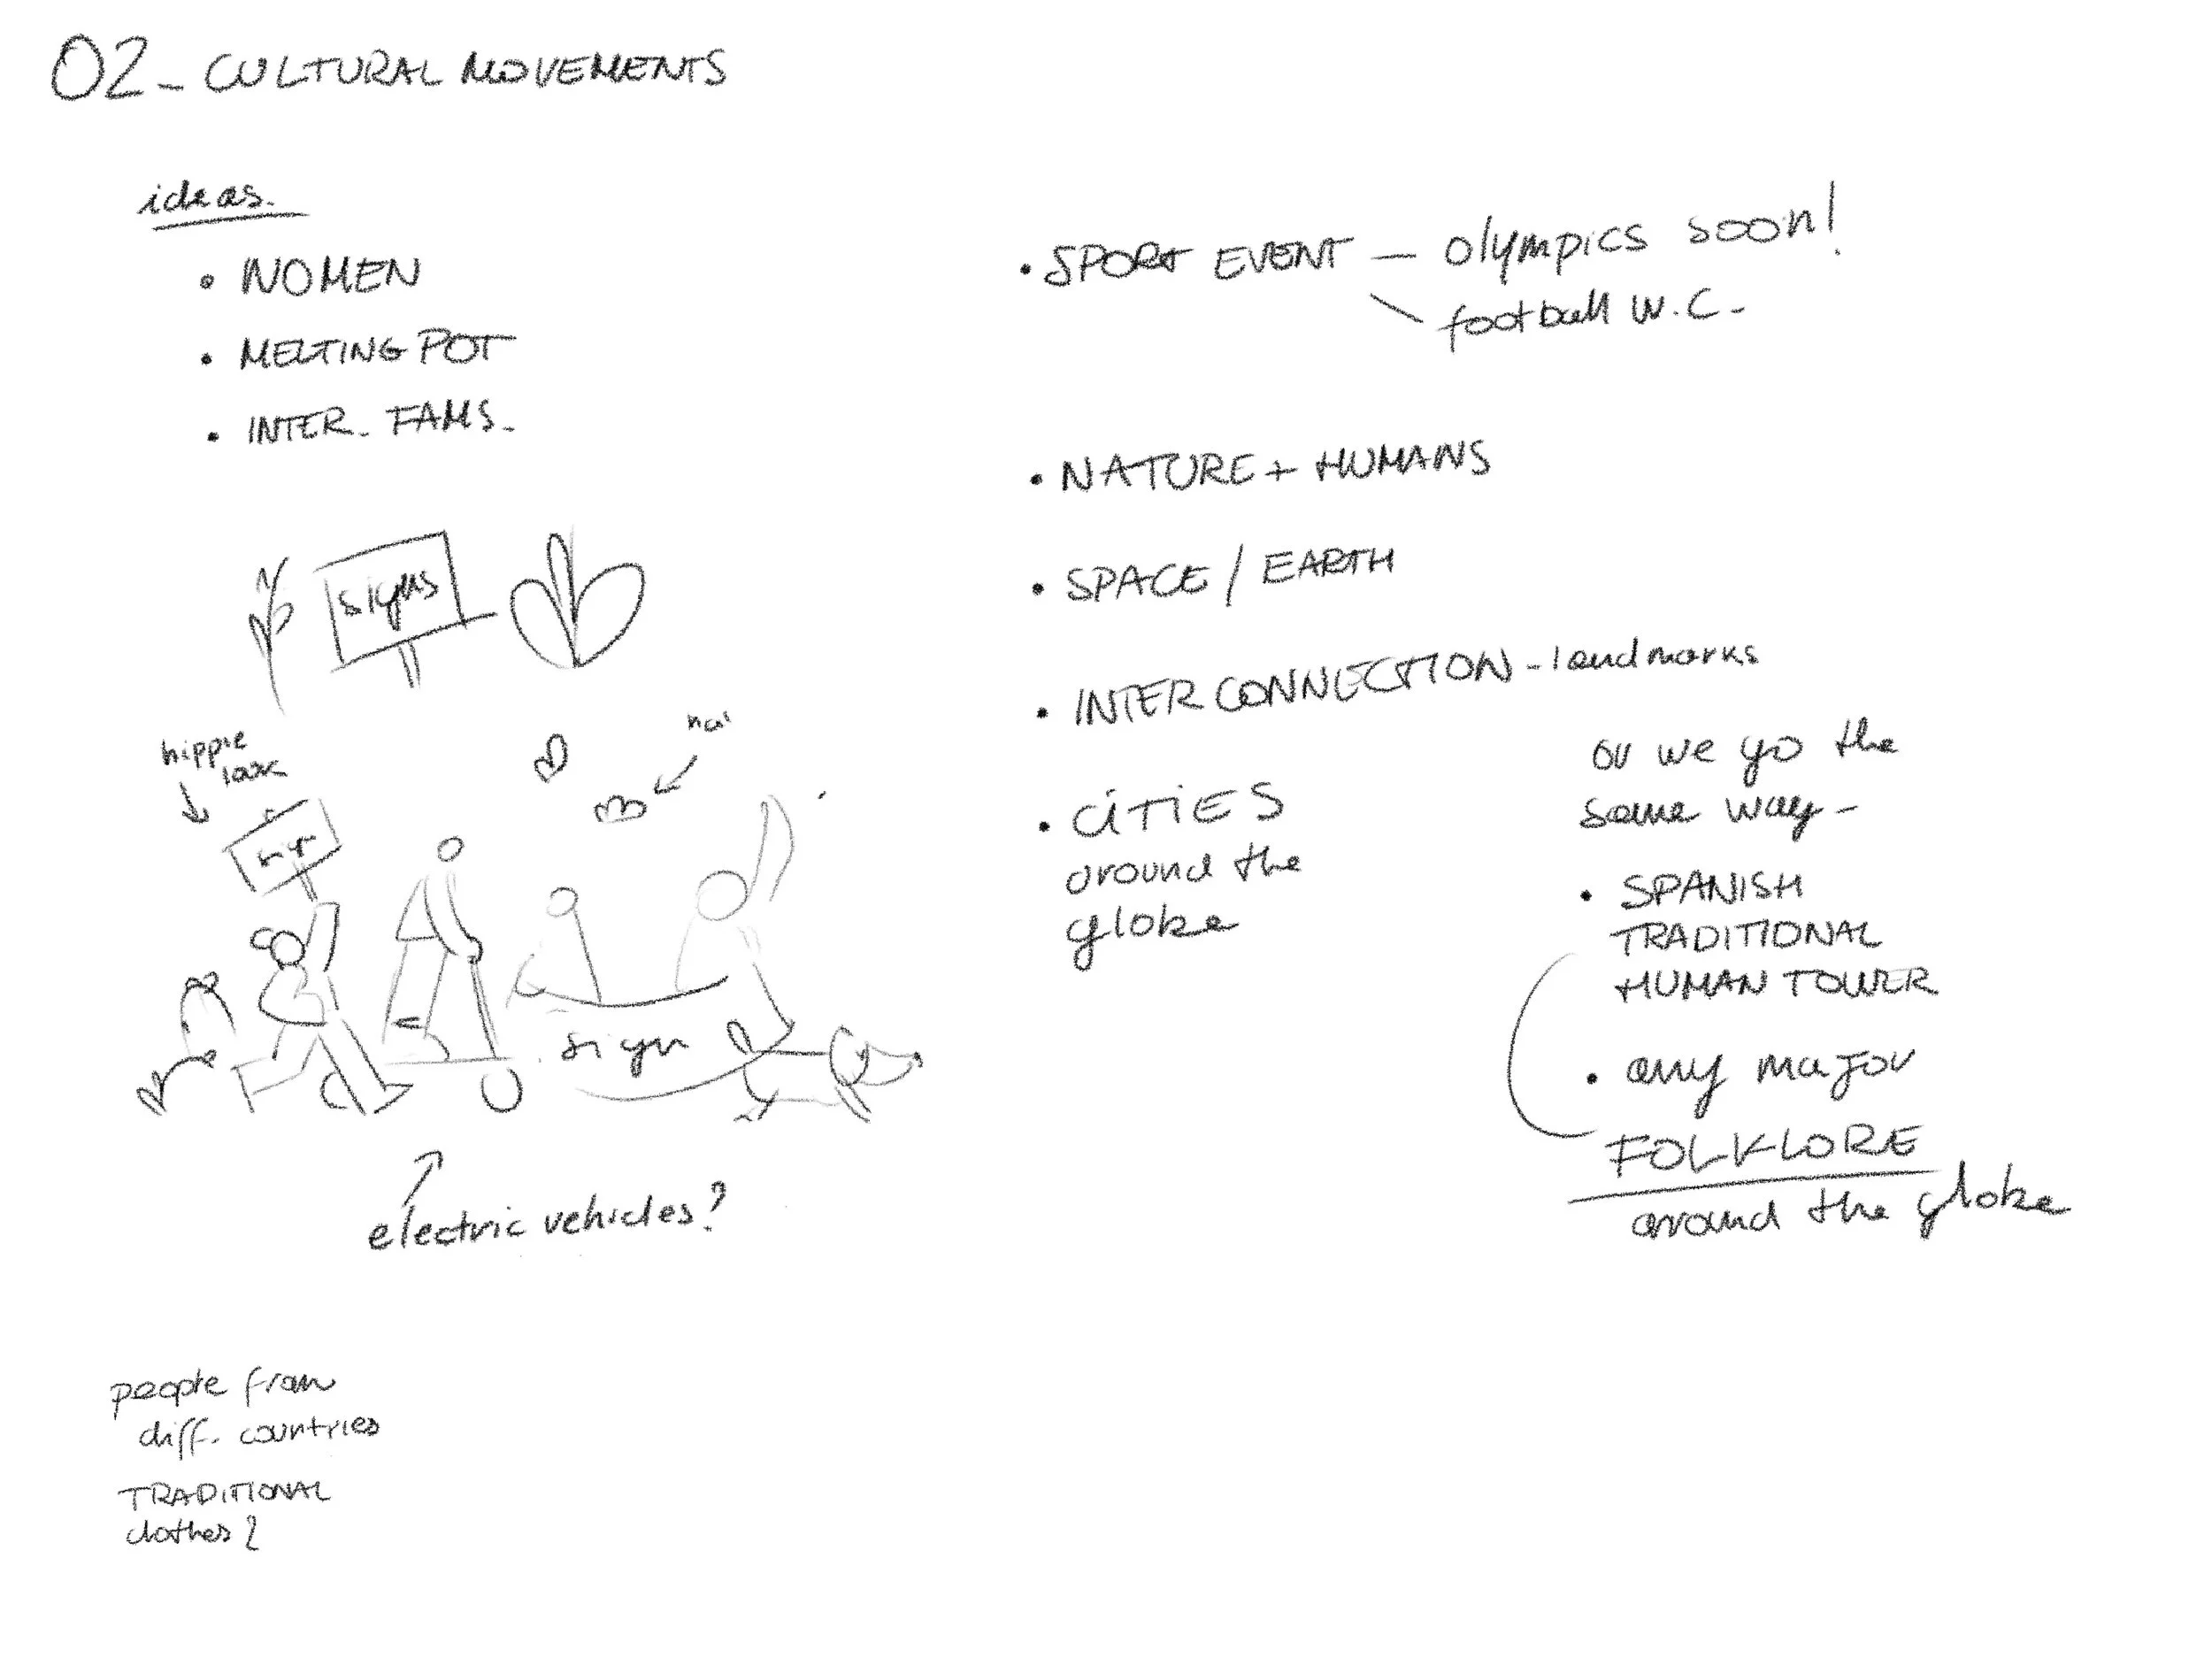 02_ CULTURAL MOVEMENTS
ideas.
• WOMEN
• MELTING POT
• INTER_ FAMS_
signs
hippie
look
sign
sign
electric vehicles?
people from
diff. countries
TRADITIONAL
clothes?
• SPORT EVENT — olympics soon!
football W.C -
• NATURE + HUMANS
• SPACE / EARTH
• INTERCONNECTION - landmarks
• CITIES
around the
globe
or we go the
same way -
• SPANISH
TRADITIONAL
HUMAN TOWER
• any major
FOLKLORE
around the globe